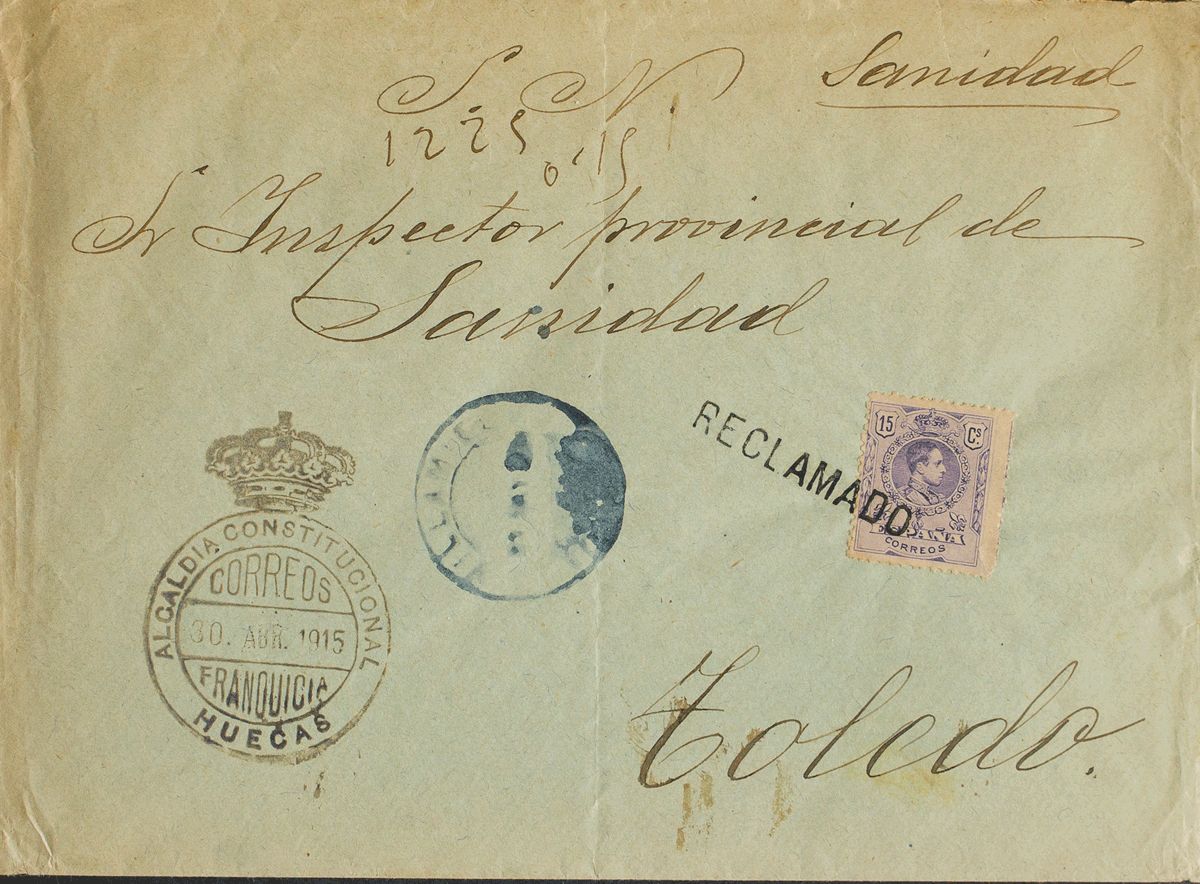 Sanidad
S. N.
1225
0'15
Sr Inspector provincial de
Sanidad
RECLAMADO
15 Cs.
ESPAÑA
CORREOS
ALCALDIA CONSTITUCIONAL
CORREOS
30. ABR. 1915
FRANQUICIA
HUECAS
Toledo.